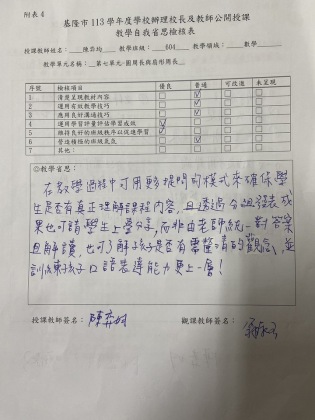 附表 4
基隆市 113 學年度學校辦理校長及教師公開授課
教學自我省思檢核表
授課教師姓名： 陳弈均 教學班級： 604 教學領域： 數學
教學單元名稱： 第七單元-圓周長與扇形周長
序號 檢核項目 優良 普通 可改進 未呈現
1 清楚呈現教材內容
2 運用有效教學技巧
3 應用良好溝通技巧
4 運用學習評量評估學習成效
5 維持良好的班級秩序以促進學習
6 營造積極的班級氣氛
7 其他：
◎教學省思：
在教學過程中可用更多提問的模式來確保學
生是否有真正理解課程內容，且透過分組發表成
果也可請學生上臺分享，而非由老師統一對答案
且解讀，也可了解孩子是否有需釐清的觀念，並
訓練孩子口語表達能力更上一層！
授課教師簽名： 觀課教師簽名：